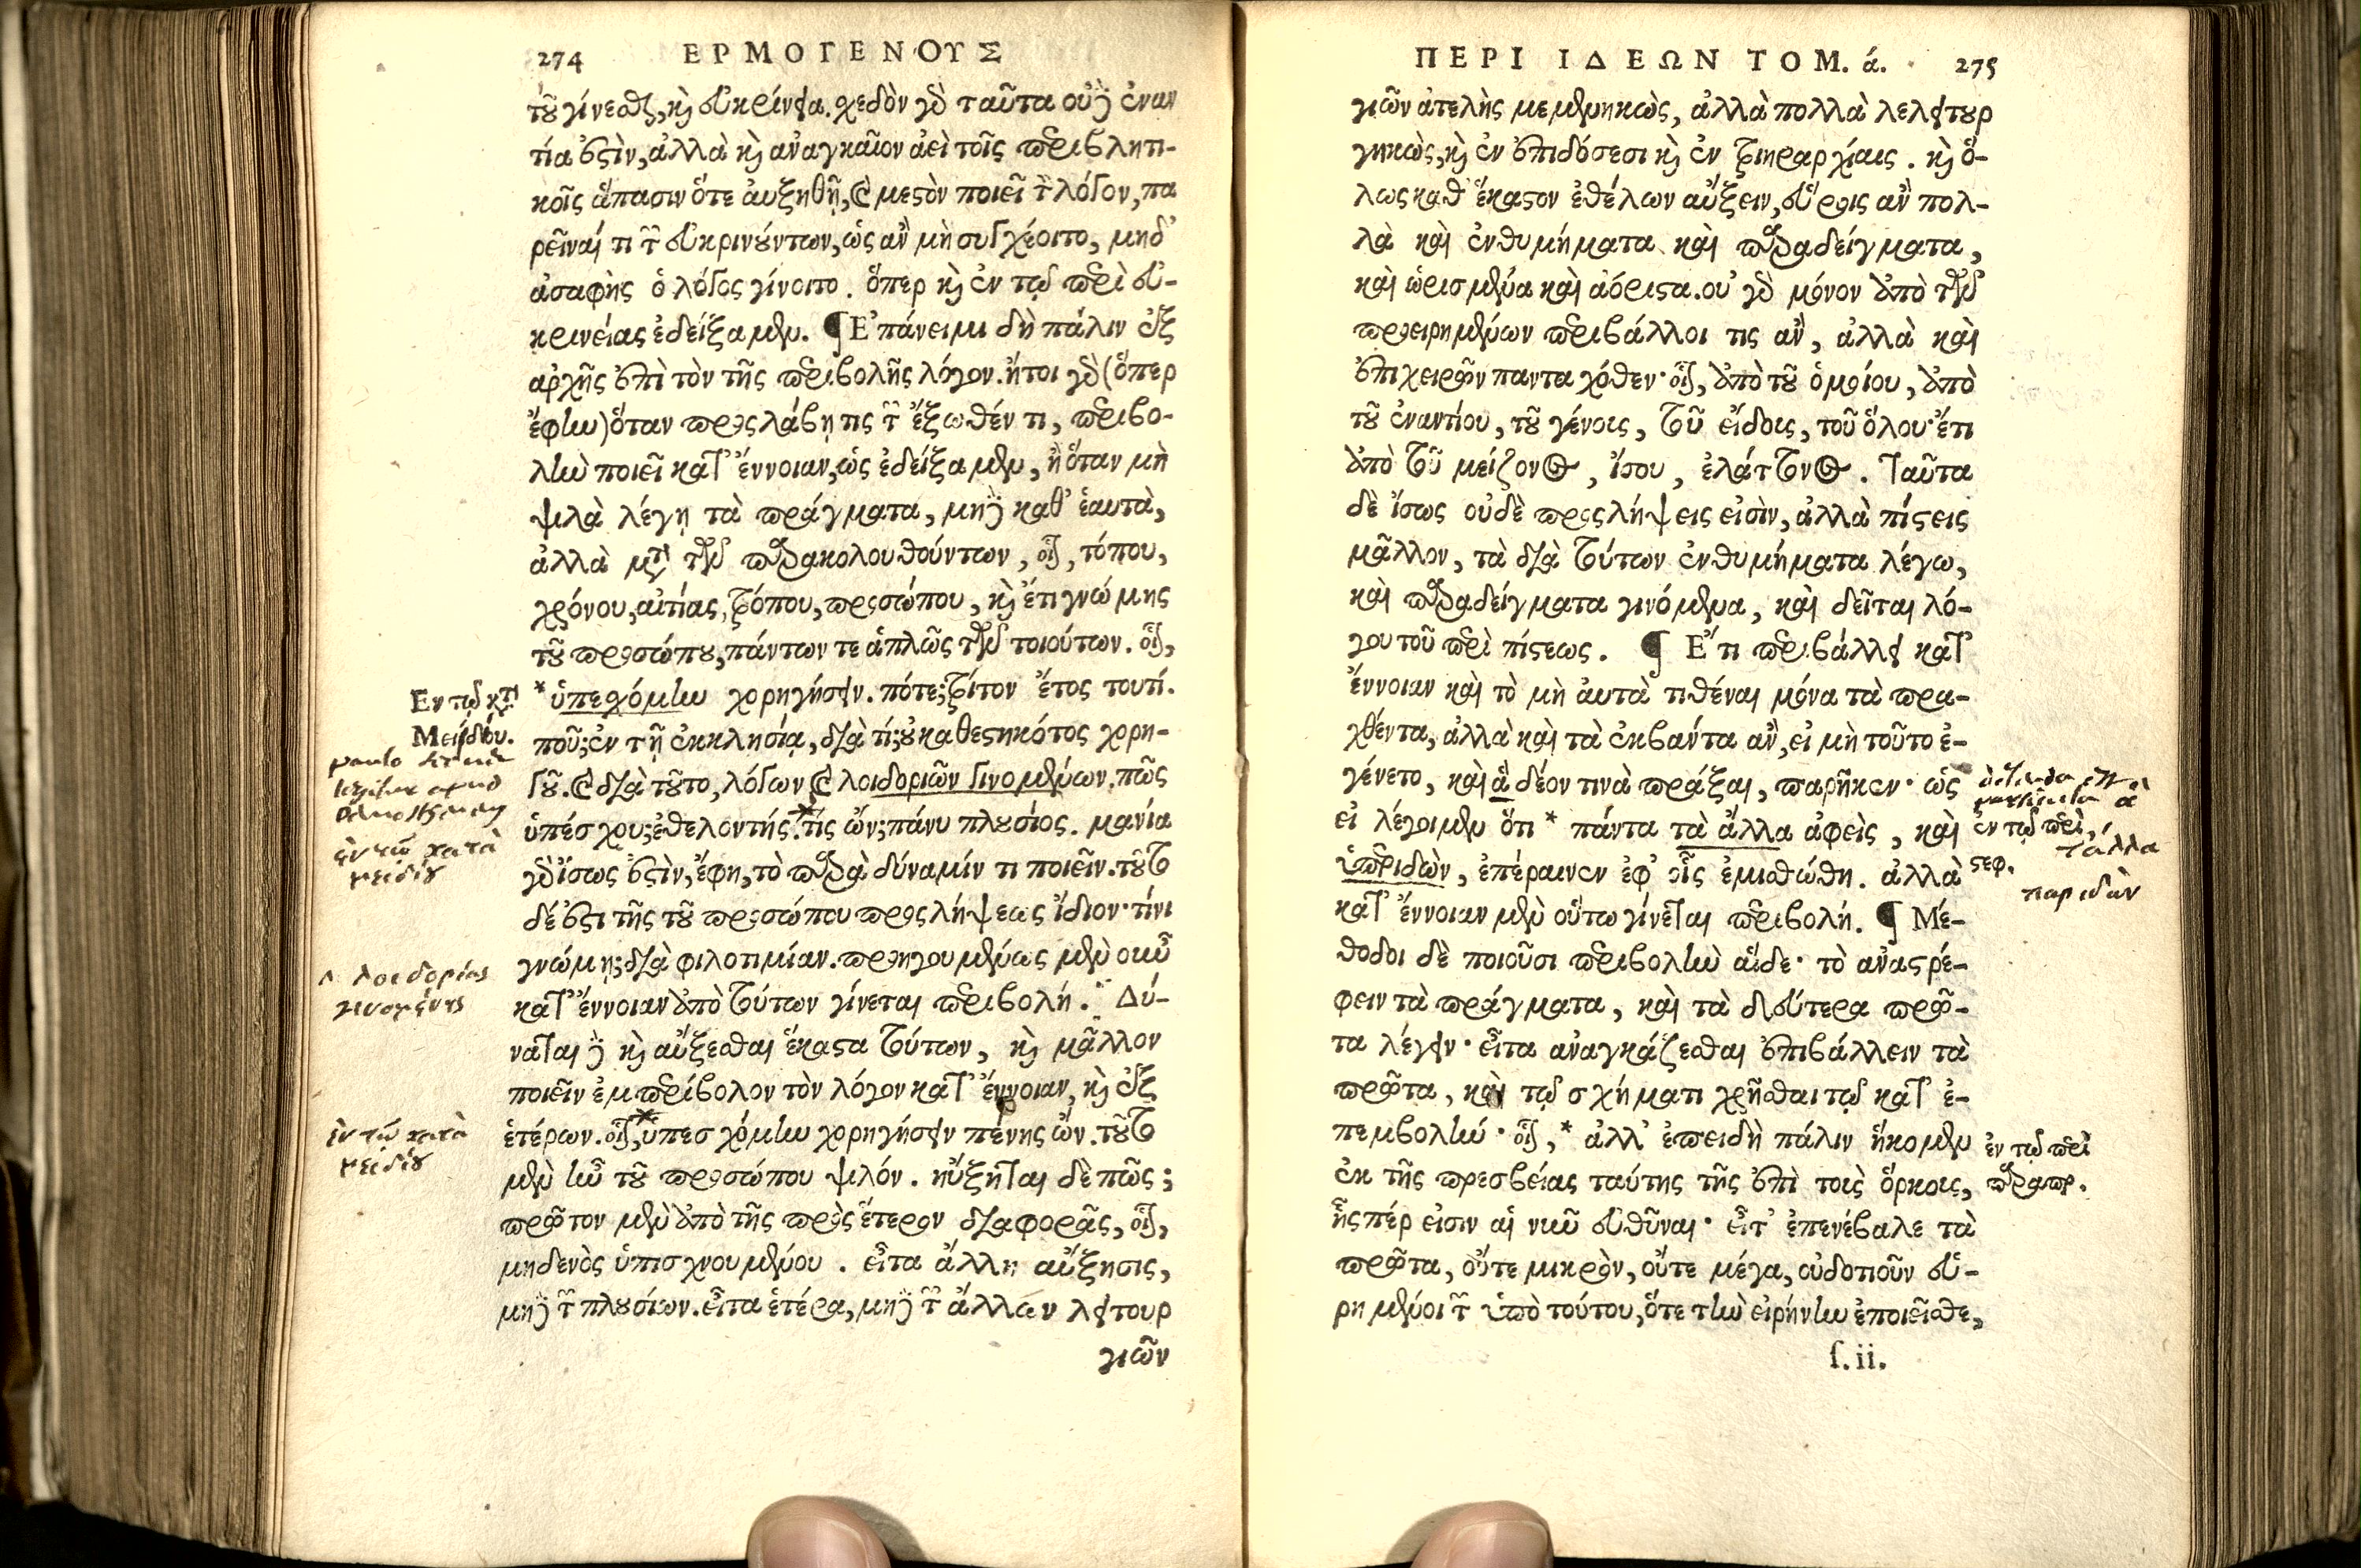 274 ΕΡΜΟΓΕΝΟΥΣ
τοῦ γίνεσθαι, καὶ εὐκρίνεια. σχεδὸν γὰρ ταῦτα οὐδὲ ἐναν
τία ἐστὶν, ἀλλὰ καὶ ἀναγκαῖον ἀεὶ τοῖς περιβλητι-
κοῖς ἅπασιν ὅτε αὐξηθῇ, καὶ μεστὸν ποιεῖ τὸν λόγον, πα
ρεῖναί τι τῶν εὐκρινούντων, ὡς ἂν μὴ συγχέοιτο, μηδ'
ἀσαφὴς ὁ λόγος γίνοιτο. ὅπερ καὶ ἐν τῷ περὶ εὐ-
κρινείας ἐδείξαμεν. ¶ Ἐπάνειμι δὴ πάλιν ἐξ
ἀρχῆς ἐπὶ τὸν τῆς περιβολῆς λόγον. ἤτοι γὰρ (ὅπερ
ἔφην) ὅταν προσλάβῃ τις τῶν ἔξωθέν τι, περιβο-
λὴν ποιεῖ κατ' ἔννοιαν, ὡς ἐδείξαμεν, ἢ ὅταν μὴ
ψιλὰ λέγῃ τὰ πράγματα, μηδὲ καθ' ἑαυτὰ,
ἀλλὰ μετὰ τῶν παρακολουθούντων, οἷον, τόπου,
χρόνου, αἰτίας, τρόπου, προσώπου, καὶ ἔτι γνώμης
τοῦ προσώπου, πάντων τε ἁπλῶς τῶν τοιούτων. οἷον,
* ὑπεσχόμην χορηγήσειν. πότε; τρίτον ἔτος τουτί.
ποῦ; ἐν τῇ ἐκκλησίᾳ, διὰ τί; οὐ καθεστηκότος χορη-
γοῦ. καὶ διὰ τοῦτο, λόγων καὶ λοιδοριῶν γινομένων. πῶς
ὑπέσχου; ἐθελοντής. τίς ὤν; πάνυ πλούσιος. μανία
γὰρ ἴσως ἐστὶν, ἔφη, τὸ παρὰ δύναμίν τι ποιεῖν. τοῦτο
δέ ἐστι τῆς τοῦ προσώπου προσλήψεως ἴδιον· τίνι
γνώμῃ; διὰ φιλοτιμίαν. προηγουμένως μὲν οὖν
κατ' ἔννοιαν ἀπὸ τούτων γίνεται περιβολή. Δύ-
ναται δὲ καὶ αὔξεσθαι ἕκαστα τούτων, καὶ μᾶλλον
ποιεῖν ἐμπερίβολον τὸν λόγον κατ' ἔννοιαν, καὶ ἐξ
ἑτέρων. οἷον, ὑπεσχόμην χορηγήσειν πένης ὤν. τοῦτο
μὲν ἦν τοῦ προσώπου ψιλόν. ηὔξηται δὲ πῶς;
πρῶτον μὲν ἀπὸ τῆς πρὸς ἕτερον διαφορᾶς, οἷον,
μηδενὸς ὑπισχνουμένου. εἶτα ἄλλη αὔξησις,
μηδὲ τῶν πλουσίων. εἶτα ἑτέρα, μηδὲ τῶν ἄλλων λειτουρ
γιῶν
Ἐν τῷ κατὰ
Μειδίου.
ἐν τῷ κατὰ
μειδίου
λοιδορίας
γινομένης
ἐν τῷ κατὰ
μειδίου
ΠΕΡΙ ΙΔΕΩΝ ΤΟΜ. ά. 275
γιῶν ἀτελὴς μεμενηκὼς, ἀλλὰ πολλὰ λελειτουρ
γηκὼς, καὶ ἐν ἐπιδόσεσι καὶ ἐν τριηραρχίαις. καὶ ὅ-
λως καθ' ἕκαστον ἐθέλων αὔξειν, εὕροις ἂν πολ-
λὰ καὶ ἐνθυμήματα καὶ παραδείγματα,
καὶ ὡρισμένα καὶ ἀόριστα. οὐ γὰρ μόνον ἀπὸ τῶν
προειρημένων περιβάλλοι τις ἂν, ἀλλὰ καὶ
ἐπιχειρῶν πανταχόθεν· οἷον, ἀπὸ τοῦ ὁμοίου, ἀπὸ
τοῦ ἐναντίου, τοῦ γένους, τοῦ εἴδους, τοῦ ὅλου· ἔτι
ἀπὸ τοῦ μείζονος, ἴσου, ἐλάττονος. Ταῦτα
δὲ ἴσως οὐδὲ προσλήψεις εἰσὶν, ἀλλὰ πίστεις
μᾶλλον, τὰ διὰ τούτων ἐνθυμήματα λέγω,
καὶ παραδείγματα γινόμενα, καὶ δεῖται λό-
γου τοῦ περὶ πίστεως. ¶ Ἔτι περιβάλλει κατ'
ἔννοιαν καὶ τὸ μὴ αὐτὰ τιθέναι μόνα τὰ πρα-
χθέντα, ἀλλὰ καὶ τὰ ἐκβάντα ἂν, εἰ μὴ τοῦτο ἐ-
γένετο, καὶ ἃ δέον τινὰ πρᾶξαι, παρῆκεν· ὡς
εἰ λέγοιμεν ὅτι * πάντα τὰ ἄλλα ἀφεὶς, καὶ
ὑπεριδὼν, ἐπέραινεν ἐφ' οἷς ἐμισθώθη. ἀλλὰ
κατ' ἔννοιαν μὲν οὕτω γίνεται περιβολή. ¶ Μέ-
θοδοι δὲ ποιοῦσι περιβολὴν αἵδε· τὸ ἀναστρέ-
φειν τὰ πράγματα, καὶ τὰ δεύτερα πρῶ-
τα λέγειν· εἶτα ἀναγκάζεσθαι ἐπιβάλλειν τὰ
πρῶτα, καὶ τῷ σχήματι χρῆσθαι τῷ κατ' ἐ-
πεμβολήν· οἷον, * ἀλλ' ἐπειδὴ πάλιν ἥκομεν
ἐκ τῆς πρεσβείας ταύτης τῆς ἐπὶ τοὺς ὅρκους,
ἧσπέρ εἰσιν αἱ νῦν εὐθῦναι· εἶτ' ἐπενέβαλε τὰ
πρῶτα, οὔτε μικρὸν, οὔτε μέγα, οὐδοτιοῦν εὑ-
ρημένοι τῶν ὑπὸ τούτου, ὅτε τὴν εἰρήνην ἐποιεῖσθε,
ſ. ii.
ἐν τῷ περὶ
στεφ.
τἆλλα
παριδὼν
ἐν τῷ περὶ
παραπρ.